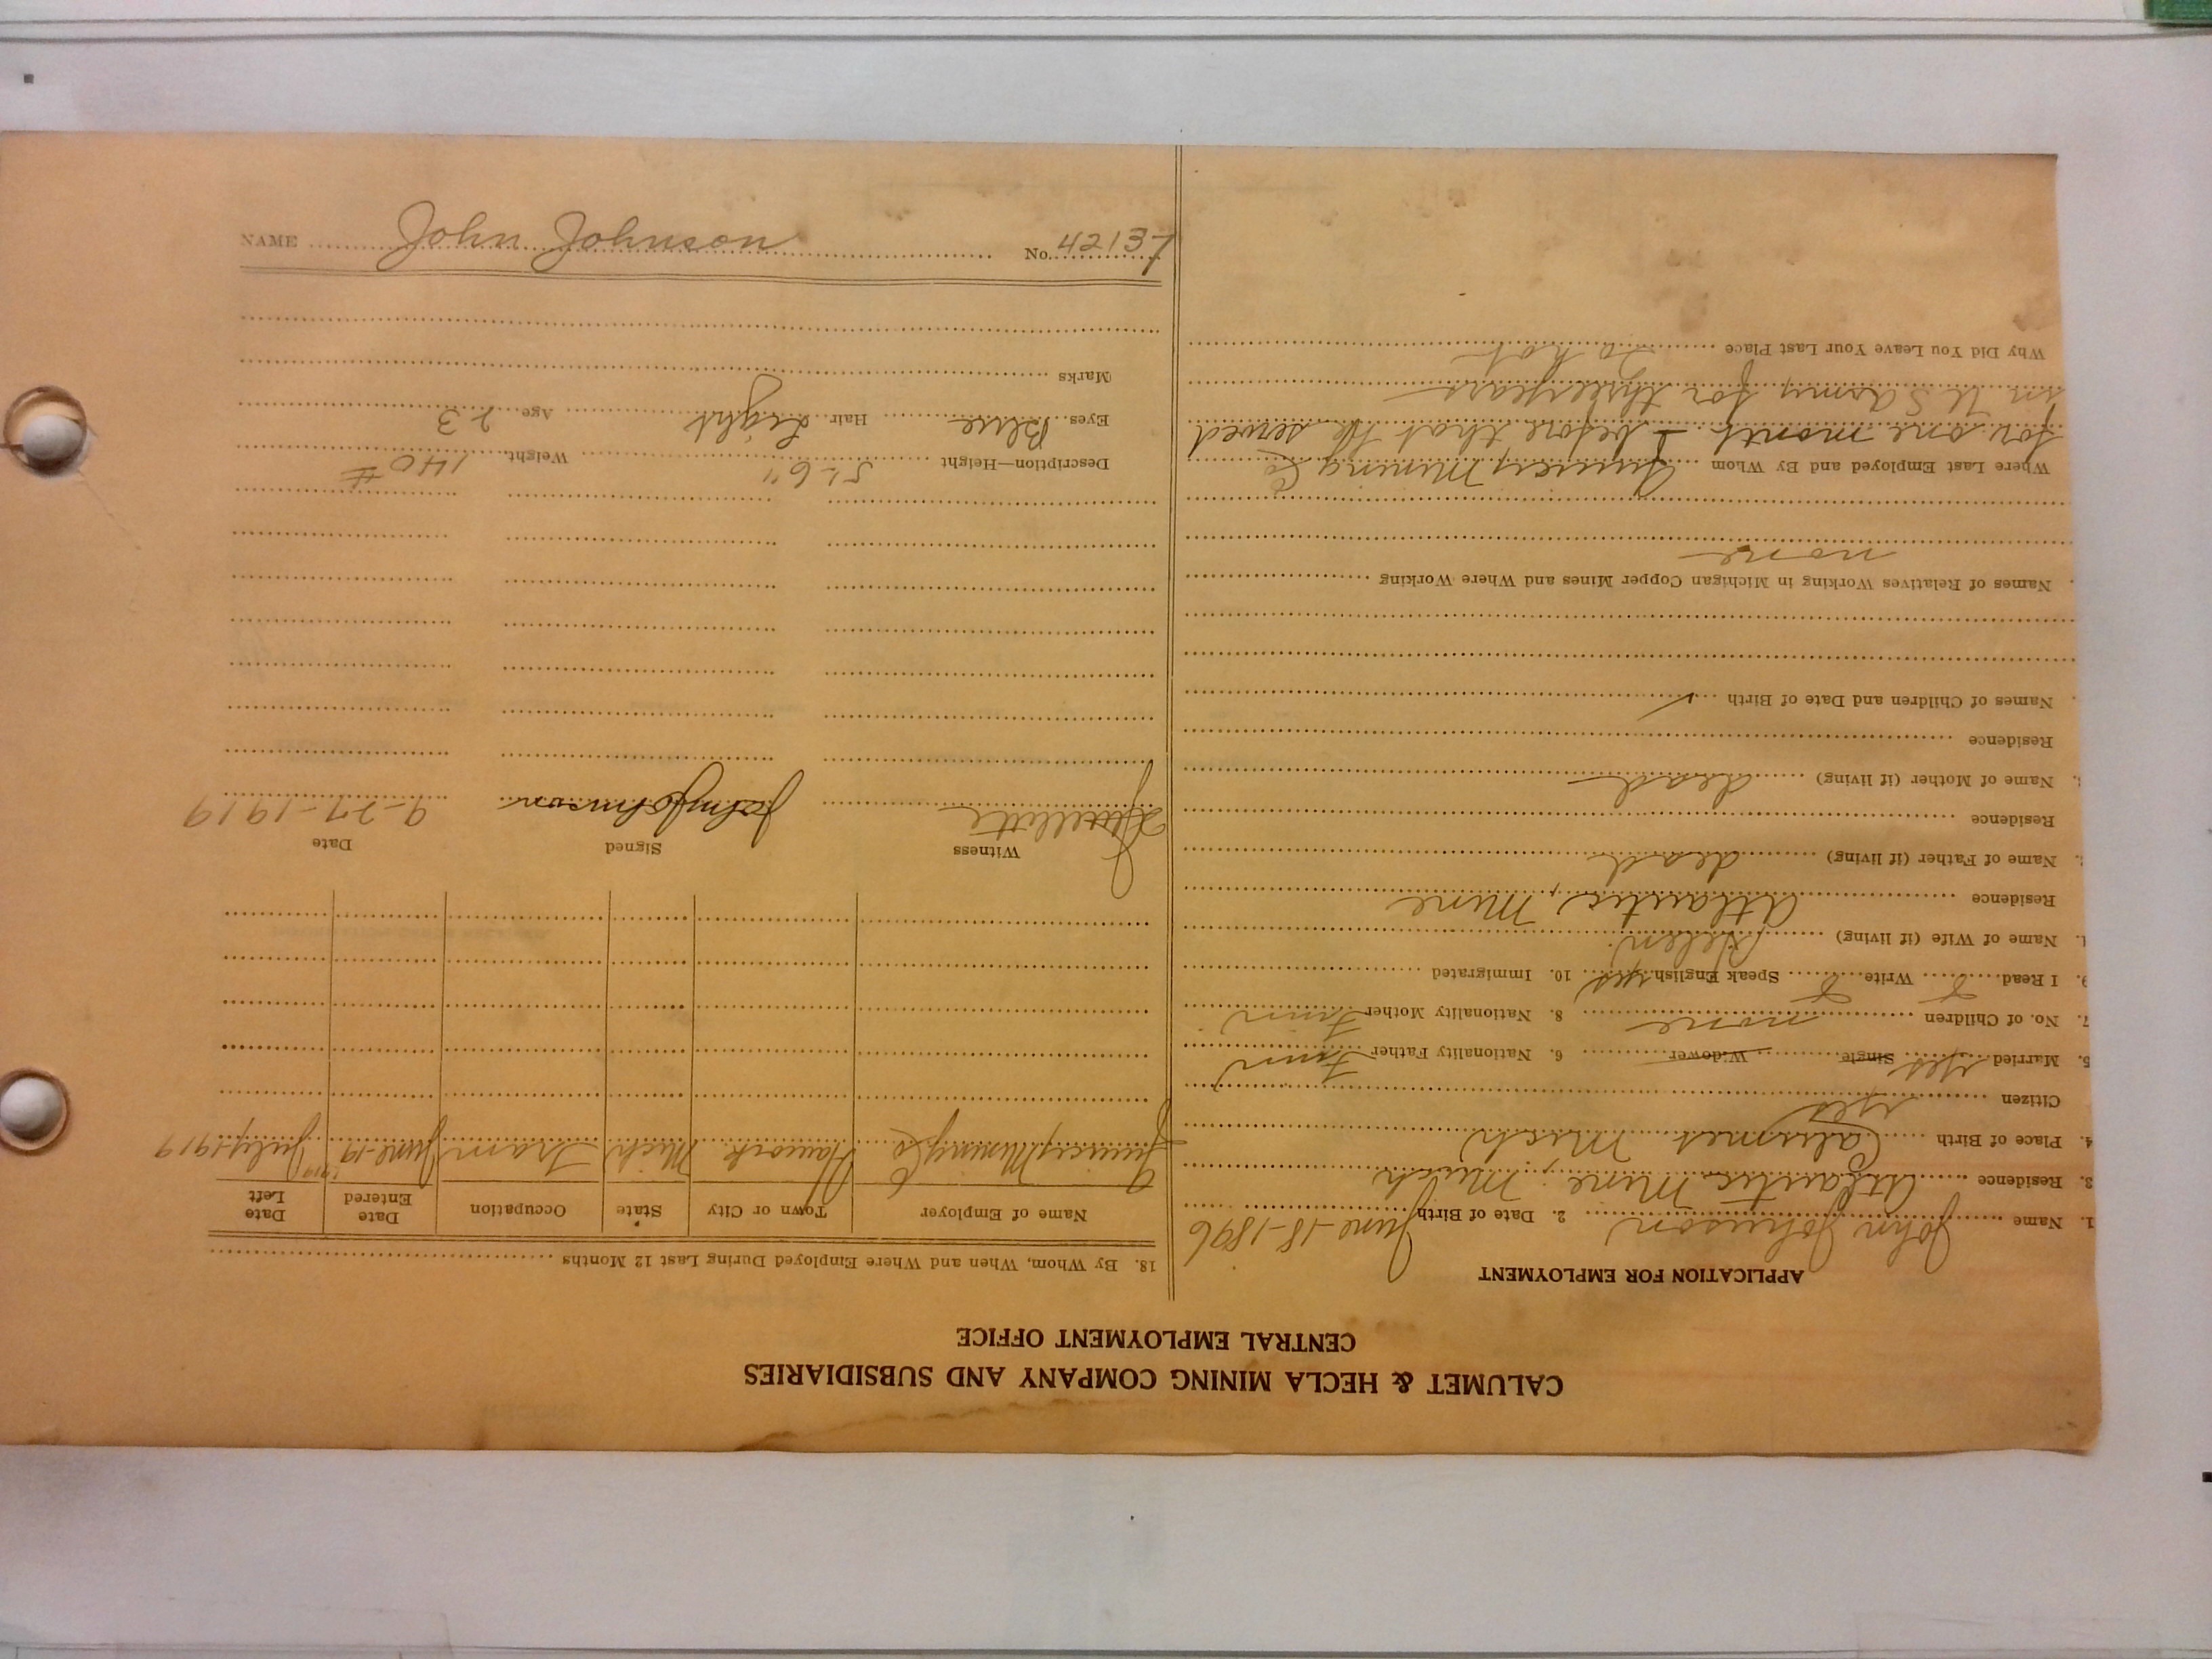 CALUMET & HECLA MINING COMPANY AND SUBSIDIARIES
CENTRAL EMPLOYMENT OFFICE
APPLICATION FOR EMPLOYMENT
1. Name John Johnson 2. Date of Birth June-18-1896
3. Residence Atlantic Mine, Mich
4. Place of Birth Calumet Mich
Citizen yes
5. Married yes Single Widower 6. Nationality Father Finn
7. No. of Children none 8. Nationality Mother Finn
9. I Read & Write & Speak English yes 10. Immigrated
1. Name of Wife (if living) Helen
Residence Atlantic, Mine
2. Name of Father (if living) dead
Residence
3. Name of Mother (if living) dead
Residence
Names of Children and Date of Birth ✓
Names of Relatives Working in Michigan Copper Mines and Where Working
none
Where Last Employed and By Whom Quincy Mining Co
for one month & before that he served
in U S army for three years
Why Did You Leave Your Last Place To hot
18. By Whom, When and Where Employed During Last 12 Months
Name of Employer Town or City State Occupation Date Entered Date Left
Quincy Mining Co Hancock Mich Tram June-1919 July-1919
Witness Signed Date
John Johnson 9-27-1919
Description—Height 5'-6" Weight 140 #
Eyes Blue Hair Light Age 23
Marks
NAME John Johnson No. 42137